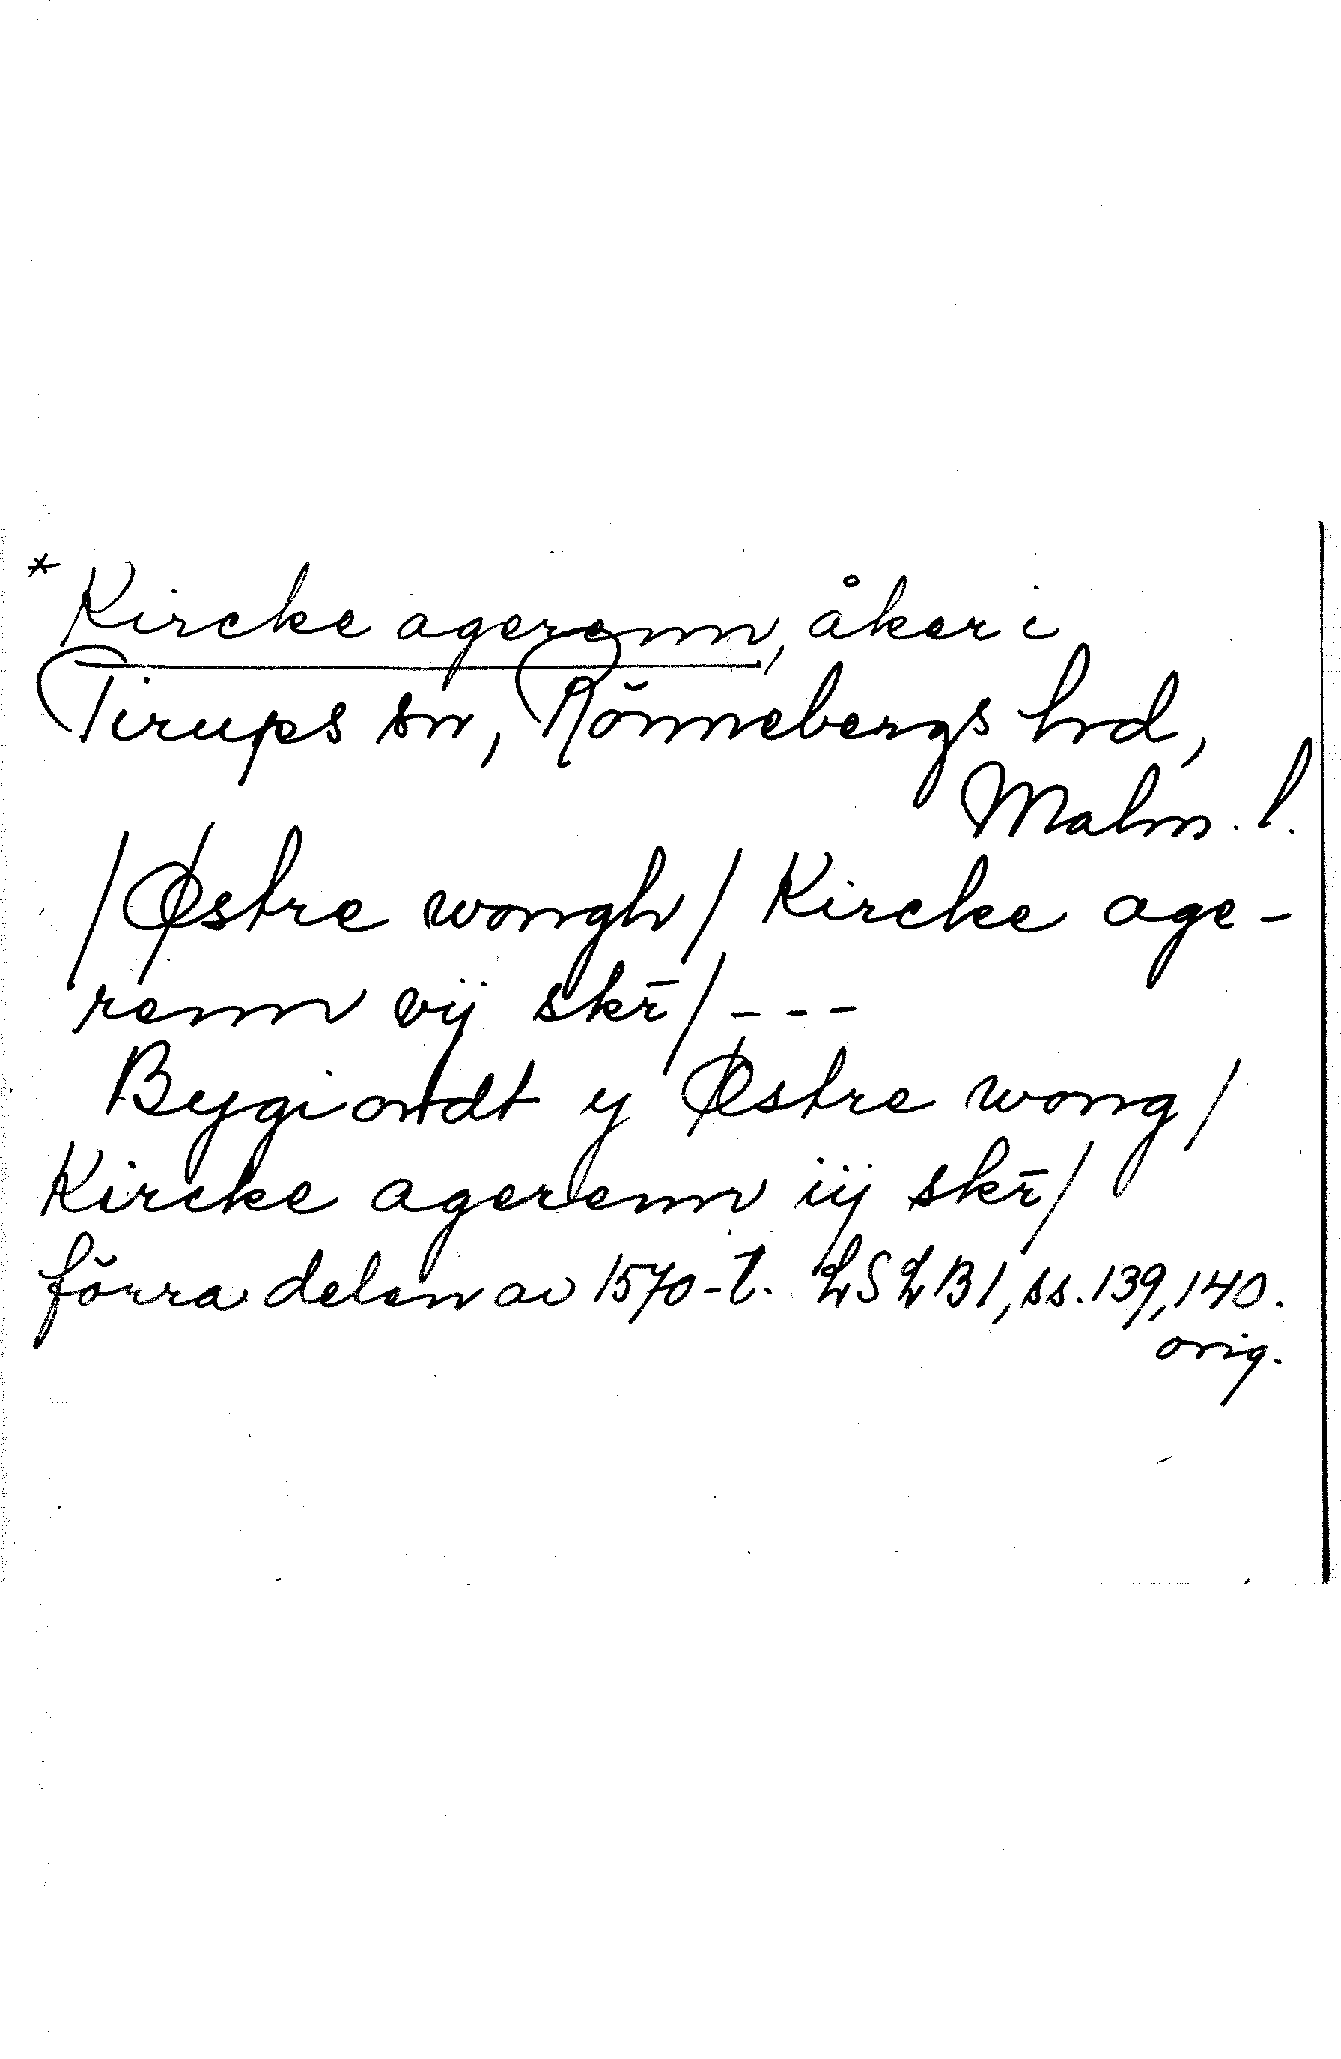 * Kircke agerenn, åker i
Tirups sn, Rönnebergs hd,
Malm. l.
/Østre wongh/ Kircke age-
renn vij skr̄/ ---
Bygiondt y Østre wong/
Kircke agerenn iij skr̄/
förra delen av 1570-t. LSLB1, ss. 139, 140.
orig.